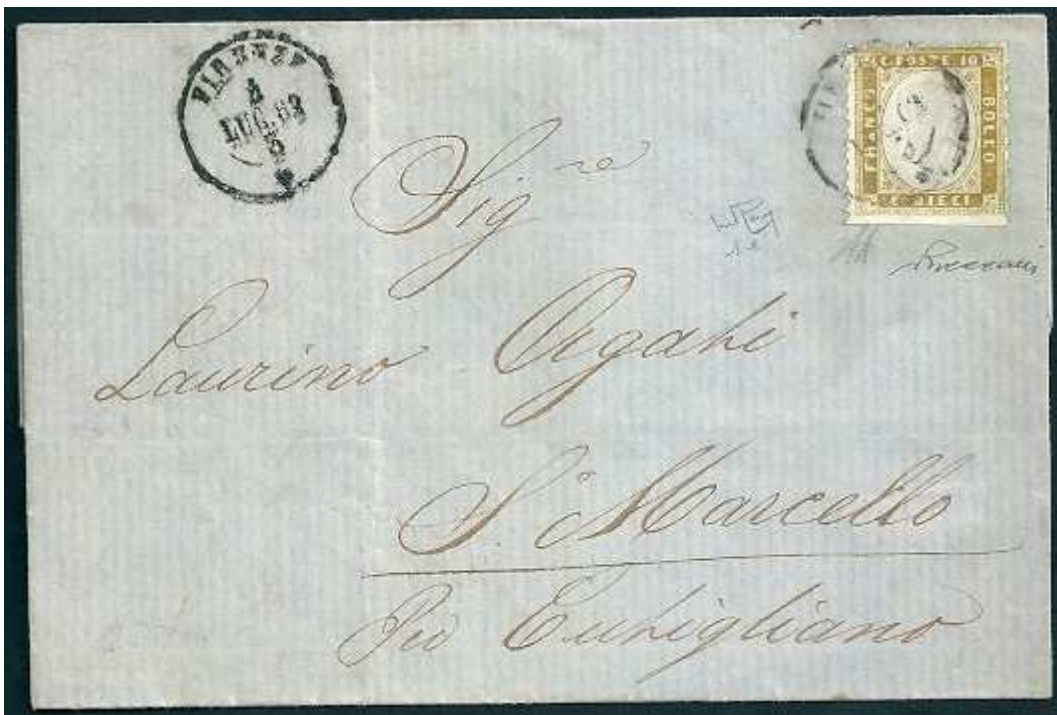 FIRENZE
LUG. 63
C. POSTE 10
FRANCO
BOLLO
C. DIECI
Sig.re
Laurino Orgahi
S. Marcello
Per Cutigliano